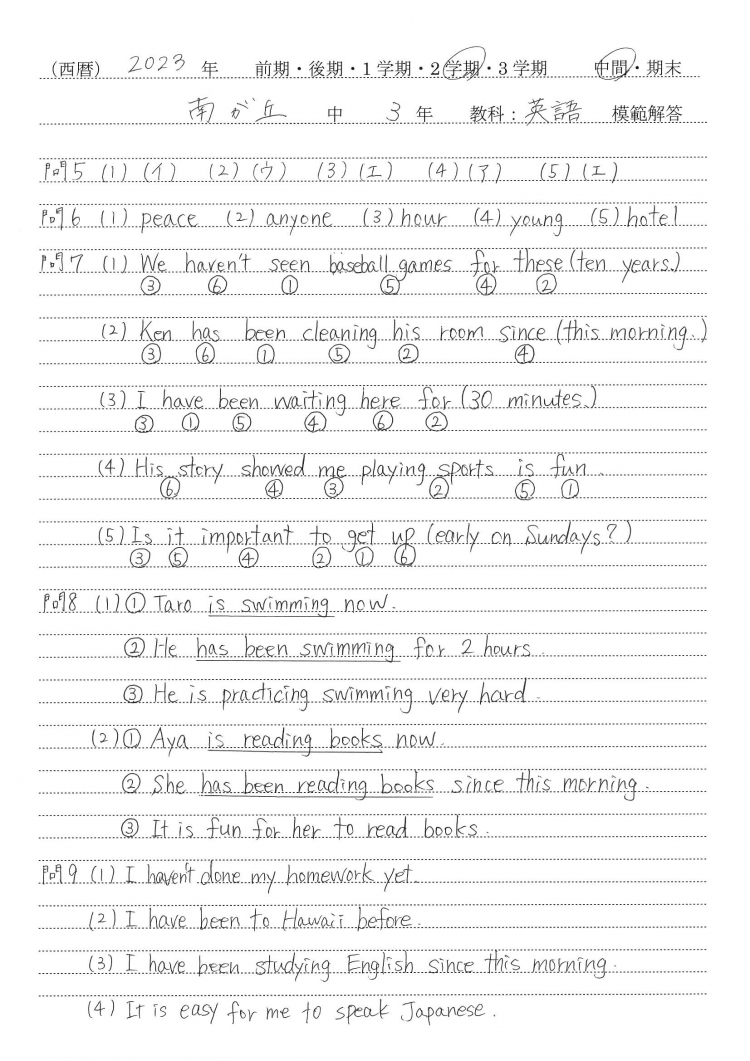 (西暦) 2023 年 前期・後期・1学期・2学期・3学期 中間・期末
南が丘 中 3 年 教科：英語 模範解答
問5 (1) (イ) (2) (ウ) (3) (エ) (4) (ア) (5) (エ)
問6 (1) peace (2) anyone (3) hour (4) young (5) hotel
問7 (1) We haven't seen baseball games for these (ten years.)
③ ⑥ ① ⑤ ④ ②
(2) Ken has been cleaning his room since (this morning.)
③ ⑥ ① ⑤ ② ④
(3) I have been waiting here for (30 minutes.)
③ ① ⑤ ④ ⑥ ②
(4) His story showed me playing sports is fun
⑥ ④ ③ ② ⑤ ①
(5) Is it important to get up (early on Sundays?)
③ ⑤ ④ ② ① ⑥
問8 (1) ① Taro is swimming now.
② He has been swimming for 2 hours.
③ He is practicing swimming very hard.
(2) ① Aya is reading books now.
② She has been reading books since this morning.
③ It is fun for her to read books.
問9 (1) I haven't done my homework yet.
(2) I have been to Hawaii before.
(3) I have been studying English since this morning.
(4) It is easy for me to speak Japanese.